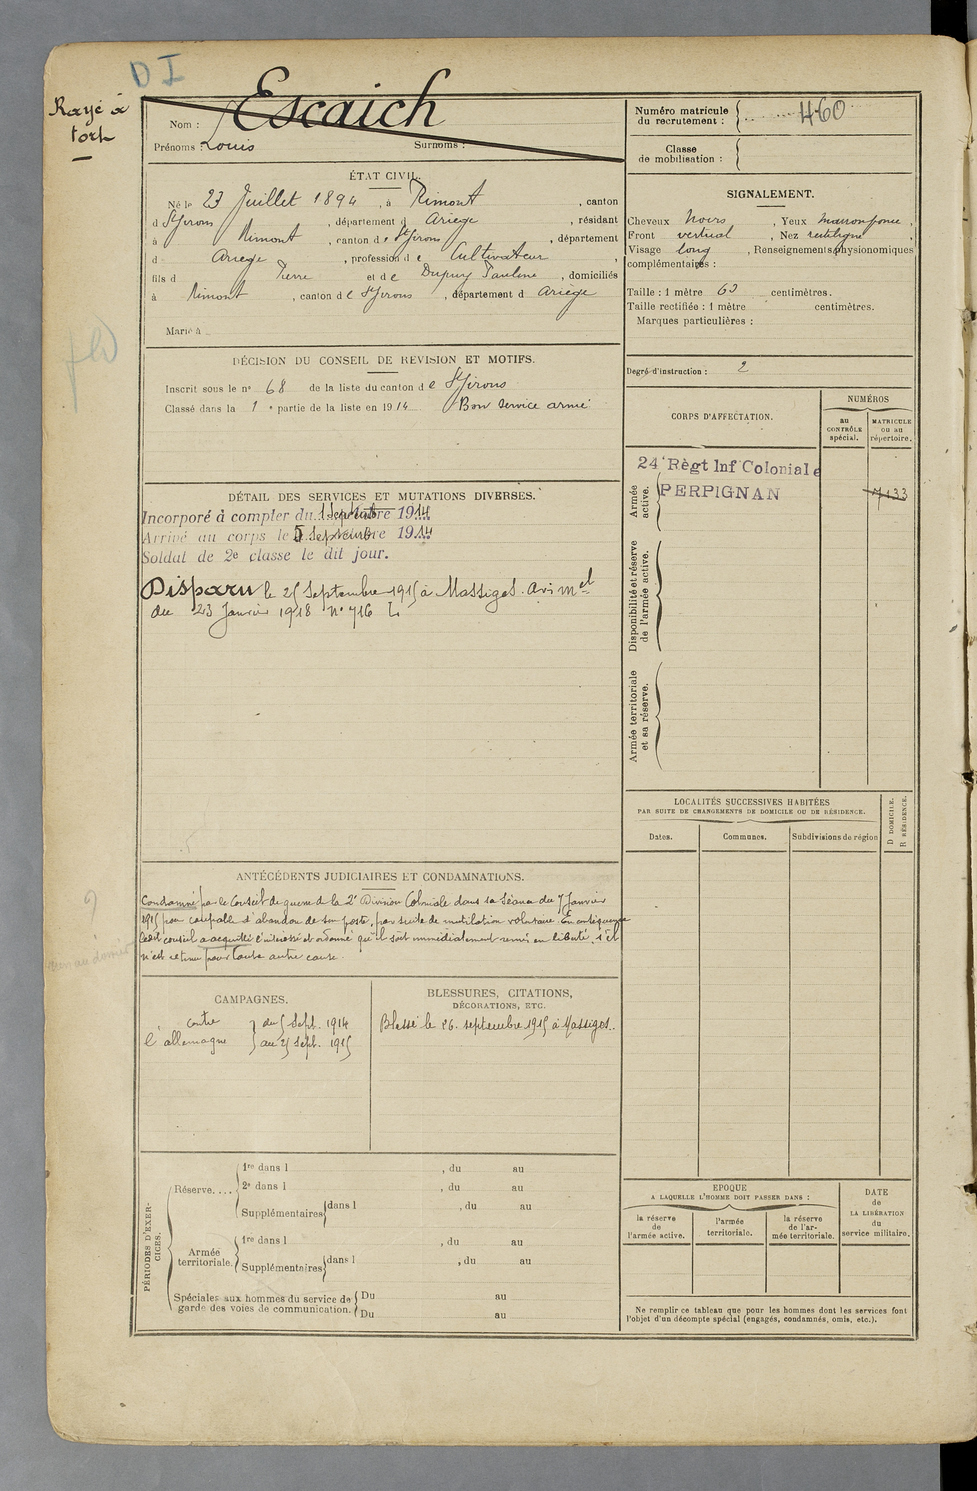 D I
Rayé à
tort
Nom : Escaich
Prénoms : Louis Surnoms :
Numéro matricule
du recrutement : 460
Classe
de mobilisation :
ÉTAT CIVIL.
Né le 23 Juillet 1894, à Rimont, canton
d St Girons, département d Ariège, résidant
à Rimont, canton de St Girons, département
d Ariège, profession de Cultivateur,
fils d Pierre et de Dupuy Pauline, domiciliés
à Rimont, canton de St Girons, département d Ariège
Marié à
SIGNALEMENT.
Cheveux Noirs, Yeux marron foncé,
Front vertical, Nez rectiligne,
Visage long, Renseignements physionomiques
complémentaires :
Taille : 1 mètre 63 centimètres.
Taille rectifiée : 1 mètre centimètres.
Marques particulières :
Degré d'instruction : 2
DÉCISION DU CONSEIL DE REVISION ET MOTIFS.
Inscrit sous le n° 68 de la liste du canton de St Girons
Classé dans la 1e partie de la liste en 1914 Bon service armé
CORPS D'AFFECTATION.
NUMÉROS
au
CONTRÔLE
spécial.
MATRICULE
ou au
répertoire.
Armée
active.
24e Règt Inf Coloniale
PERPIGNAN
7133
Disponibilité et réserve
de l'armée active.
Armée territoriale
et sa réserve.
DÉTAIL DES SERVICES ET MUTATIONS DIVERSES.
Incorporé à compter du 1 Septembre 1914
Arrivé au corps le 5 Septembre 1914
Soldat de 2e classe le dit jour.
Disparu le 25 Septembre 1915 à Massiges. Avis mel
du 23 Janvier 1918 N° 716 L
LOCALITÉS SUCCESSIVES HABITÉES
PAR SUITE DE CHANGEMENTS DE DOMICILE OU DE RÉSIDENCE.
Dates.
Communes.
Subdivisions de région
D DOMICILE.
R RÉSIDENCE.
ANTÉCÉDENTS JUDICIAIRES ET CONDAMNATIONS.
Condamné par le Conseil de guerre de la 2e Division Coloniale dans sa Séance du 7 Janvier
1915 pour coupable d'abandon de son poste, par suite de mutilation volontaire. En conséquence
ledit conseil a acquitté l'intéressé et ordonné qu'il soit immédiatement remis en liberté s'il
n'est retenu pour toute autre cause.
CAMPAGNES.
contre du 5 Sept. 1914
l'allemagne au 25 Sept. 1915
BLESSURES, CITATIONS,
DÉCORATIONS, ETC.
Blessé le 26 septembre 1915 à Massiges.
PÉRIODES D'EXER-
CICES.
Réserve....
1re dans l , du au
2e dans l , du au
Supplémentaires dans l , du au
Armée
territoriale.
1re dans l , du au
Supplémentaires dans l , du au
Spéciales aux hommes du service de
garde des voies de communication.
Du au
Du au
EPOQUE
A LAQUELLE L'HOMME DOIT PASSER DANS :
la réserve
de
l'armée active.
l'armée
territoriale.
la réserve
de l'ar-
mée territoriale.
DATE
de
LA LIBÉRATION
du
service militaire.
Ne remplir ce tableau que pour les hommes dont les services font
l'objet d'un décompte spécial (engagés, condamnés, omis, etc.).